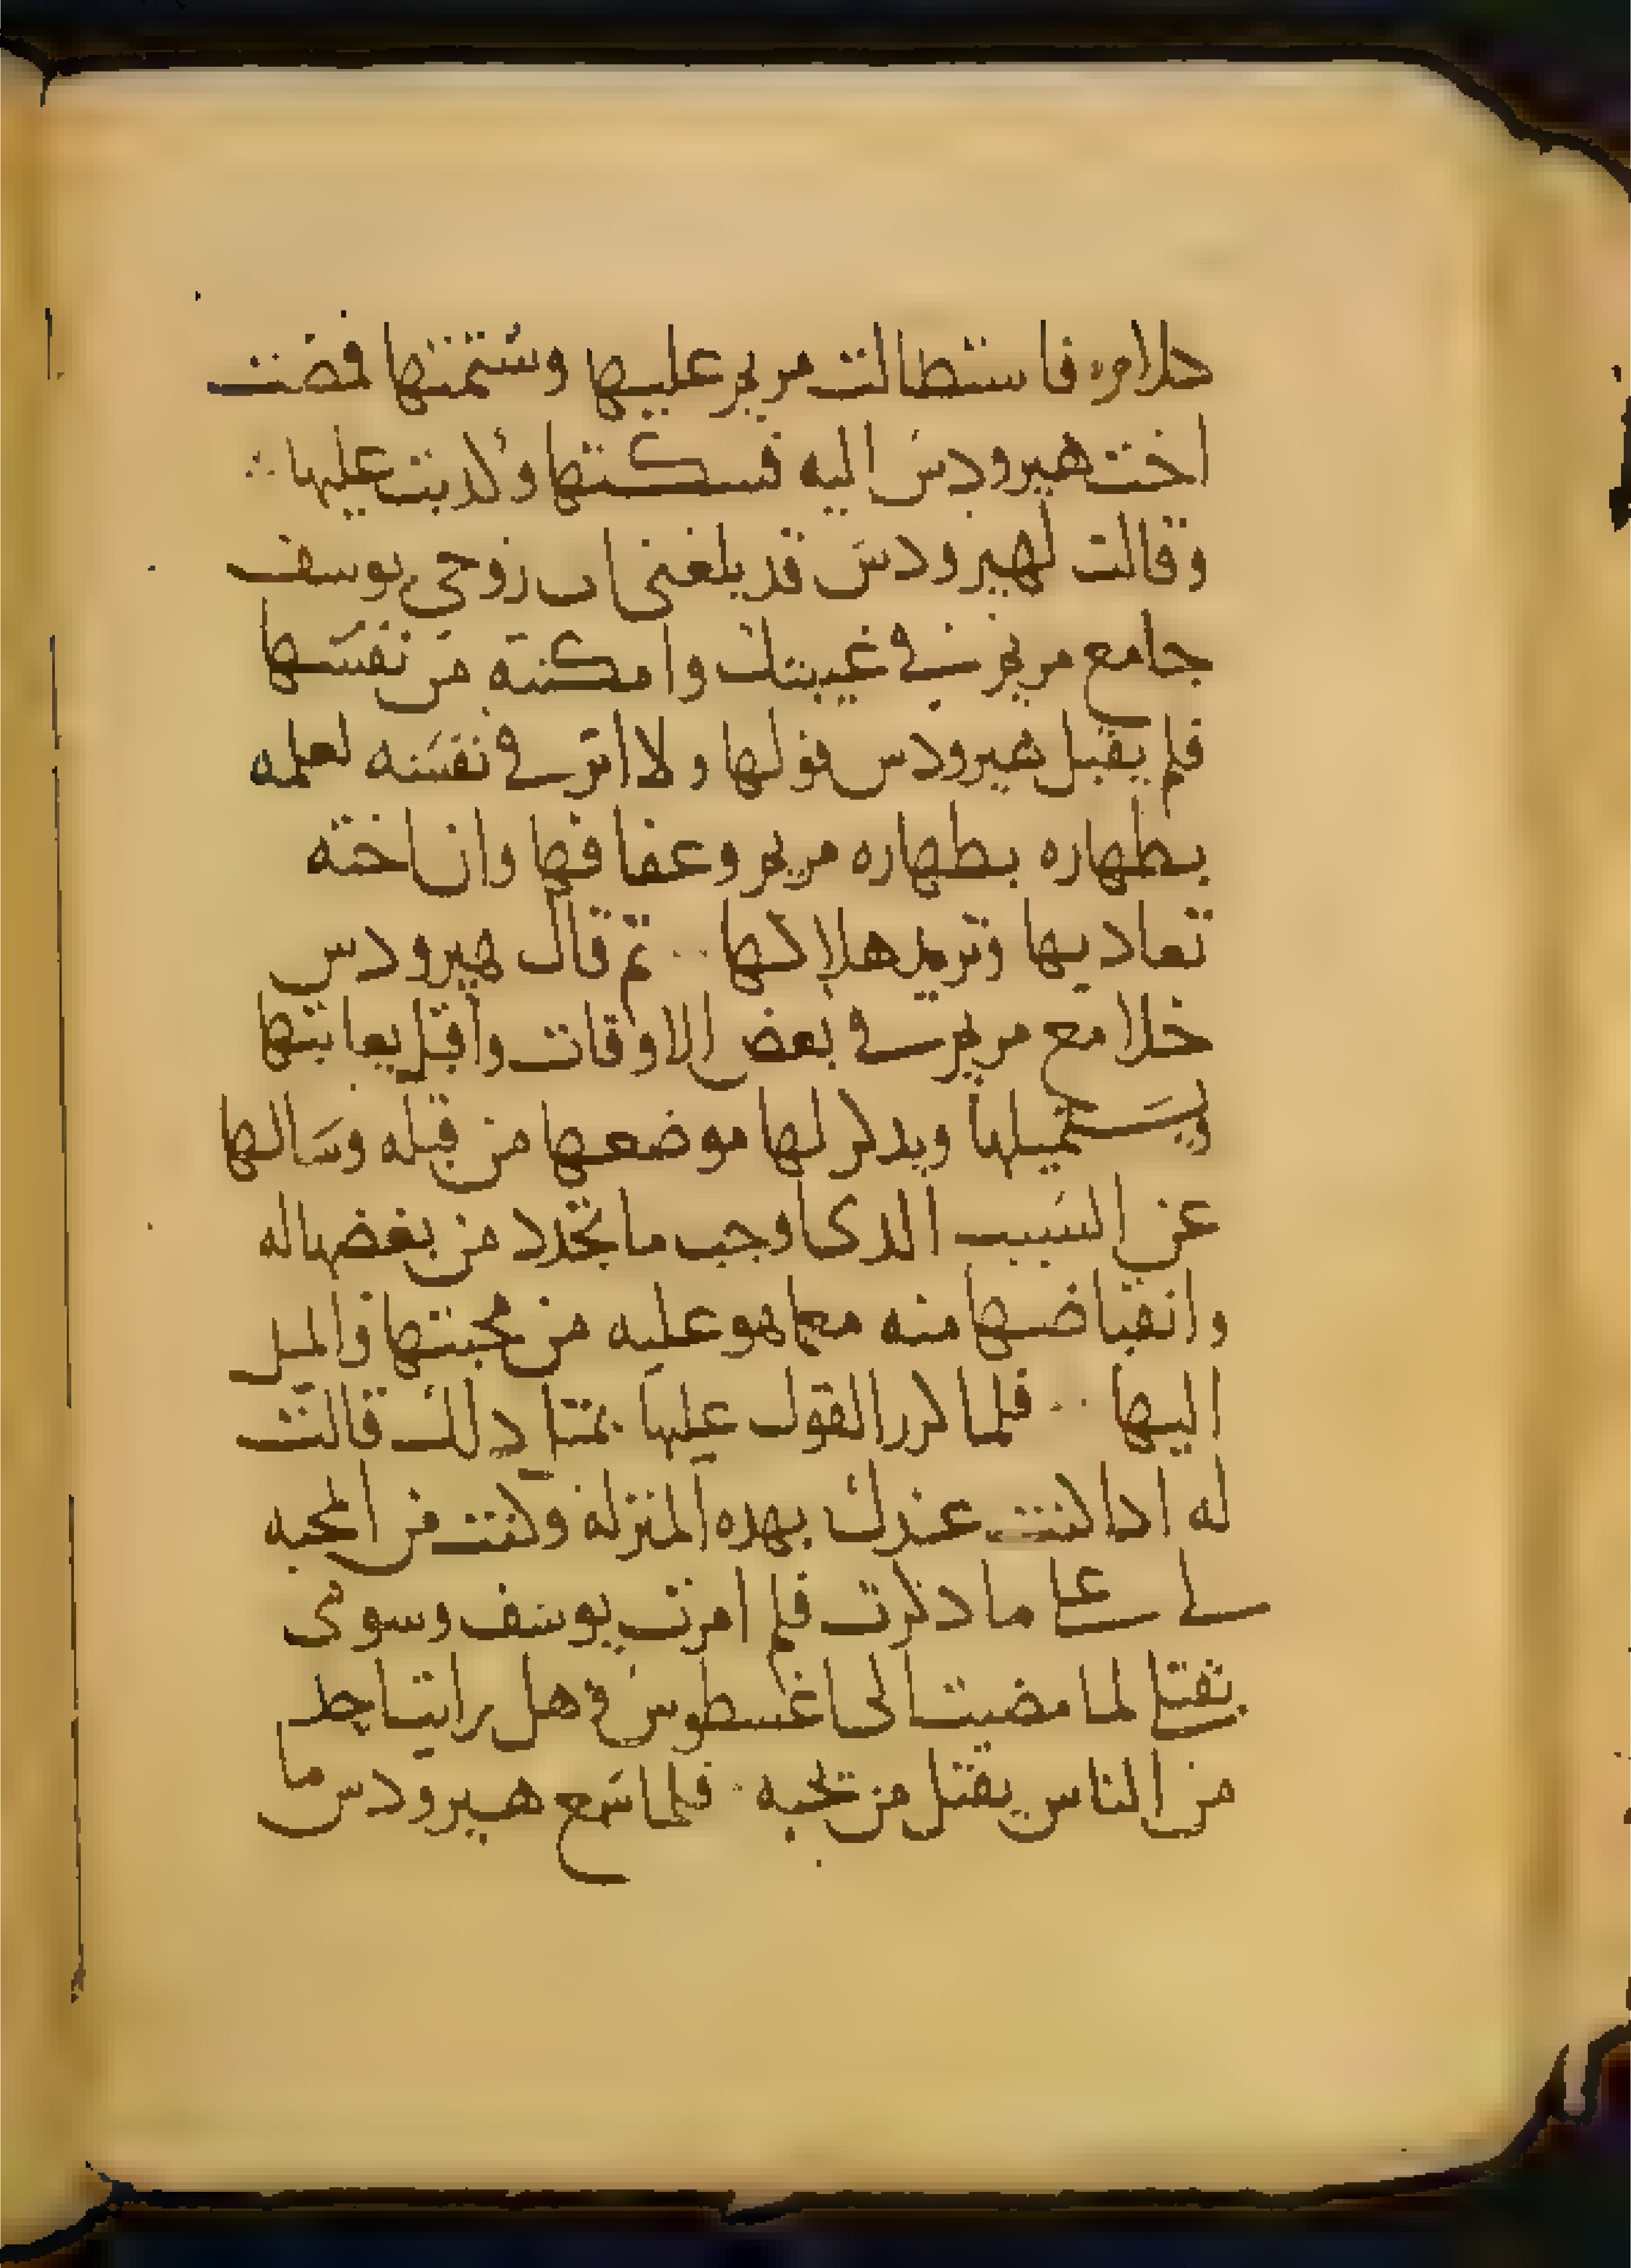 كلامه فاستطالت مريم عليها وشتمتها فمضت
اخت هيرودس اليه فسكتها وكدبت عليها ∴
وقالت لهيرودس قد بلغنى ان زوجي يوسف
جامع مريم في غيبتك وامكنته من نفسها
فلم يقبل هيرودس قولها ولا اثر في نفسه لعلمه
بطهاره بطهاره مريم وعفافها وان اخته
تعاديها وتريد هلاكها ·· ثم قال هيرودس
خلا مع مريم في بعض الاوقات واقبل يعاتبها
ويستميلها ويدكر لها موضعها من قبله وسالها
عن السبب الدى اوجب ما تجدد من بغضها له
وانقباضها منه مع ما هو عليه من محبتها والميل
اليها ·· فلما كرر القول عليها بمثل دلك قالت
له ادا كنت عندك بهده المنزلة وكنت من المحبه
لى على ما دكرت فلم امرت يوسف وسومى
بقتلى لما مضيت الى اغسطوس وهل رايت احد
من الناس يقتل من يحبه · فلما سمع هيرودس ما